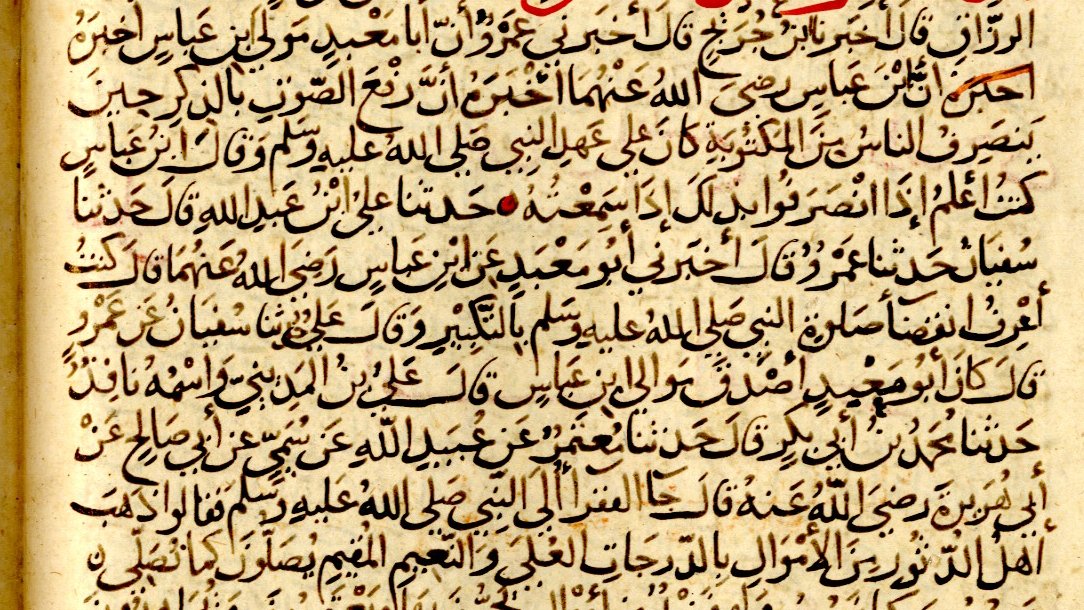 الرزاق قال أخبرنا ابن جريج قال أخبرني عمرو أن أبا معبد مولى ابن عباس أخبره
أخبره أن ابن عباس رضي الله عنهما أخبره أن رفع الصوت بالذكر حين
ينصرف الناس من المكتوبة كان على عهد النبي صلى الله عليه وسلم وقال ابن عباس
كنت أعلم إذا انصرفوا بذلك إذا سمعته حدثنا علي ابن عبد الله قال حدثنا
سفيان حدثنا عمرو قال أخبرني أبو معبد عن ابن عباس رضي الله عنهما قال كنت
أعرف انقضا صلوة النبي صلى الله عليه وسلم بالتكبير وقال علي ثنا سفيان عن عمرو
قال كان أبو معبد أصدق موالي ابن عباس قال علي بن المديني واسمه نافذ
حدثنا محمد بن أبي بكر قال حدثنا معتمر عن عبيد الله عن سمي عن أبي صالح عن
أبي هريرة رضي الله عنه قال جا الفقرا إلى النبي صلى الله عليه وسلم فقالوا ذهب
أهل الدثور من الأموال بالدرجات العلى والنعيم المقيم يصلون كما نصلي